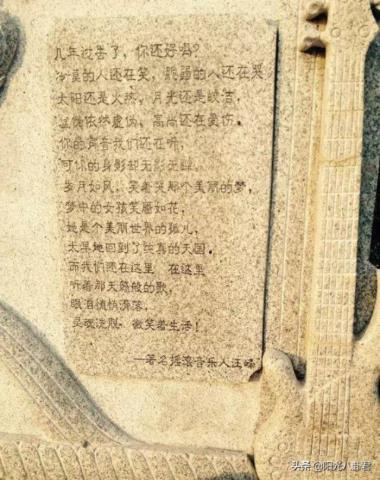 几年过去了，你还好吗？
冷漠的人还在笑，脆弱的人还在哭
太阳还是火热，月光还是皎洁，
虚伪依然虚伪，高尚还在忧伤。
你的声音我们还在听，
可你的身影却无影无踪。
岁月如风，笑着哭那个美丽的梦，
梦中的女孩笑靥如花，
她是个美丽世界的孤儿，
太早地回到了纯真的天国。
而我们还在这里 在这里
听着那天籁般的歌，
眼泪悄悄滑落，
灵魂洗脱 微笑着生活！
—著名摇滚音乐人汪峰
头条@阳光八卦君